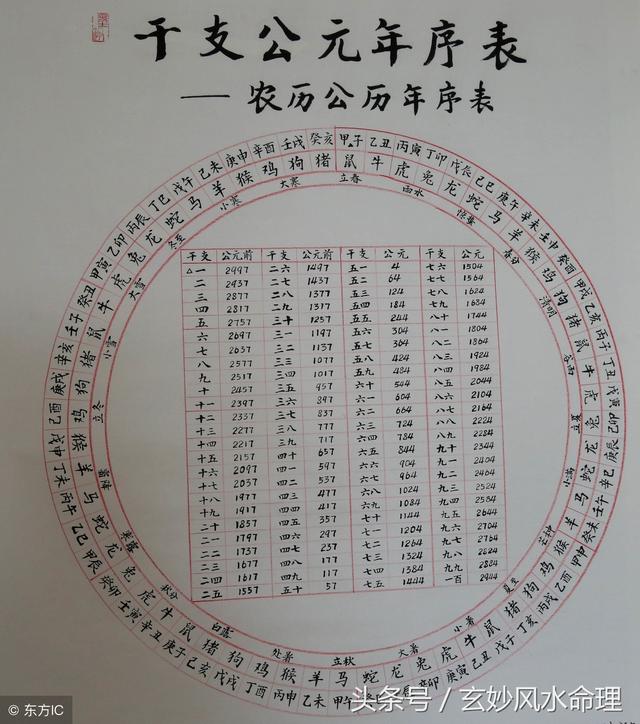 干支公元年序表
——农历公历年序表
甲子 乙丑 丙寅 丁卯 戊辰 己巳 庚午 辛未 壬申 癸酉 甲戌 乙亥 丙子 丁丑 戊寅 己卯 庚辰 辛巳 壬午 癸未 甲申 乙酉 丙戌 丁亥 戊子 己丑 庚寅 辛卯 甲午 乙未 丙申 丁酉 戊戌 己亥 庚子 辛丑 壬寅 癸卯 甲辰 乙巳 丙午 丁未 戊申 己酉 庚戌 辛亥 壬子 癸丑 甲寅 乙卯 丙辰 丁巳 戊午 己未 庚申 辛酉 壬戌 癸亥
鼠 牛 虎 兔 龙 蛇 马 羊 猴 鸡 狗 猪 鼠 牛 虎 兔 龙 蛇 马 羊 猴 鸡 狗 猪 鼠 牛 虎 兔 龙 蛇 马 羊 猴 鸡 狗 猪 鼠 牛 虎 兔 龙 蛇 马 羊 猴 鸡 狗 猪 鼠 牛 虎 兔 龙 蛇 马 羊 猴 鸡 狗 猪
立春 雨水 惊蛰 春分 清明 谷雨 立夏 小满 芒种 夏至 小暑 大暑 立秋 处暑 白露 秋分 寒露 霜降 立冬 小雪 大雪 冬至 小寒 大寒
干支 公元前 干支 公元前 干支 公元 干支 公元
△一 2997 二六 1497 五一 4 七六 1504
二 2937 二七 1437 五二 64 七七 1564
三 2877 二八 1377 五三 124 七八 1624
四 2817 二九 1317 五四 184 七九 1684
五 2757 三十 1257 五五 244 八十 1744
六 2697 三一 1197 五六 304 八一 1804
七 2637 三二 1137 五七 364 八二 1864
八 2577 三三 1077 五八 424 八三 1924
九 2517 三四 1017 五九 484 八四 1984
十 2457 三五 957 六十 544 八五 2044
十一 2397 三六 897 六一 604 八六 2104
十二 2337 三七 837 六二 664 八七 2164
十三 2277 三八 777 六三 724 八八 2224
十四 2217 三九 717 六四 784 八九 2284
十五 2157 四十 657 六五 844 九十 2344
十六 2097 四一 597 六六 904 九一 2404
十七 2037 四二 537 六七 964 九二 2464
十八 1977 四三 477 六八 1024 九三 2524
十九 1917 四四 417 六九 1084 九四 2584
二十 1857 四五 357 七十 1144 九五 2644
二一 1797 四六 297 七一 1204 九六 2704
二二 1737 四七 237 七二 1264 九七 2764
二三 1677 四八 177 七三 1324 九八 2824
二四 1617 四九 117 七四 1384 九九 2884
二五 1557 五十 57 七五 1444 一百 2944
© 东方IC
头条号 / 玄妙风水命理